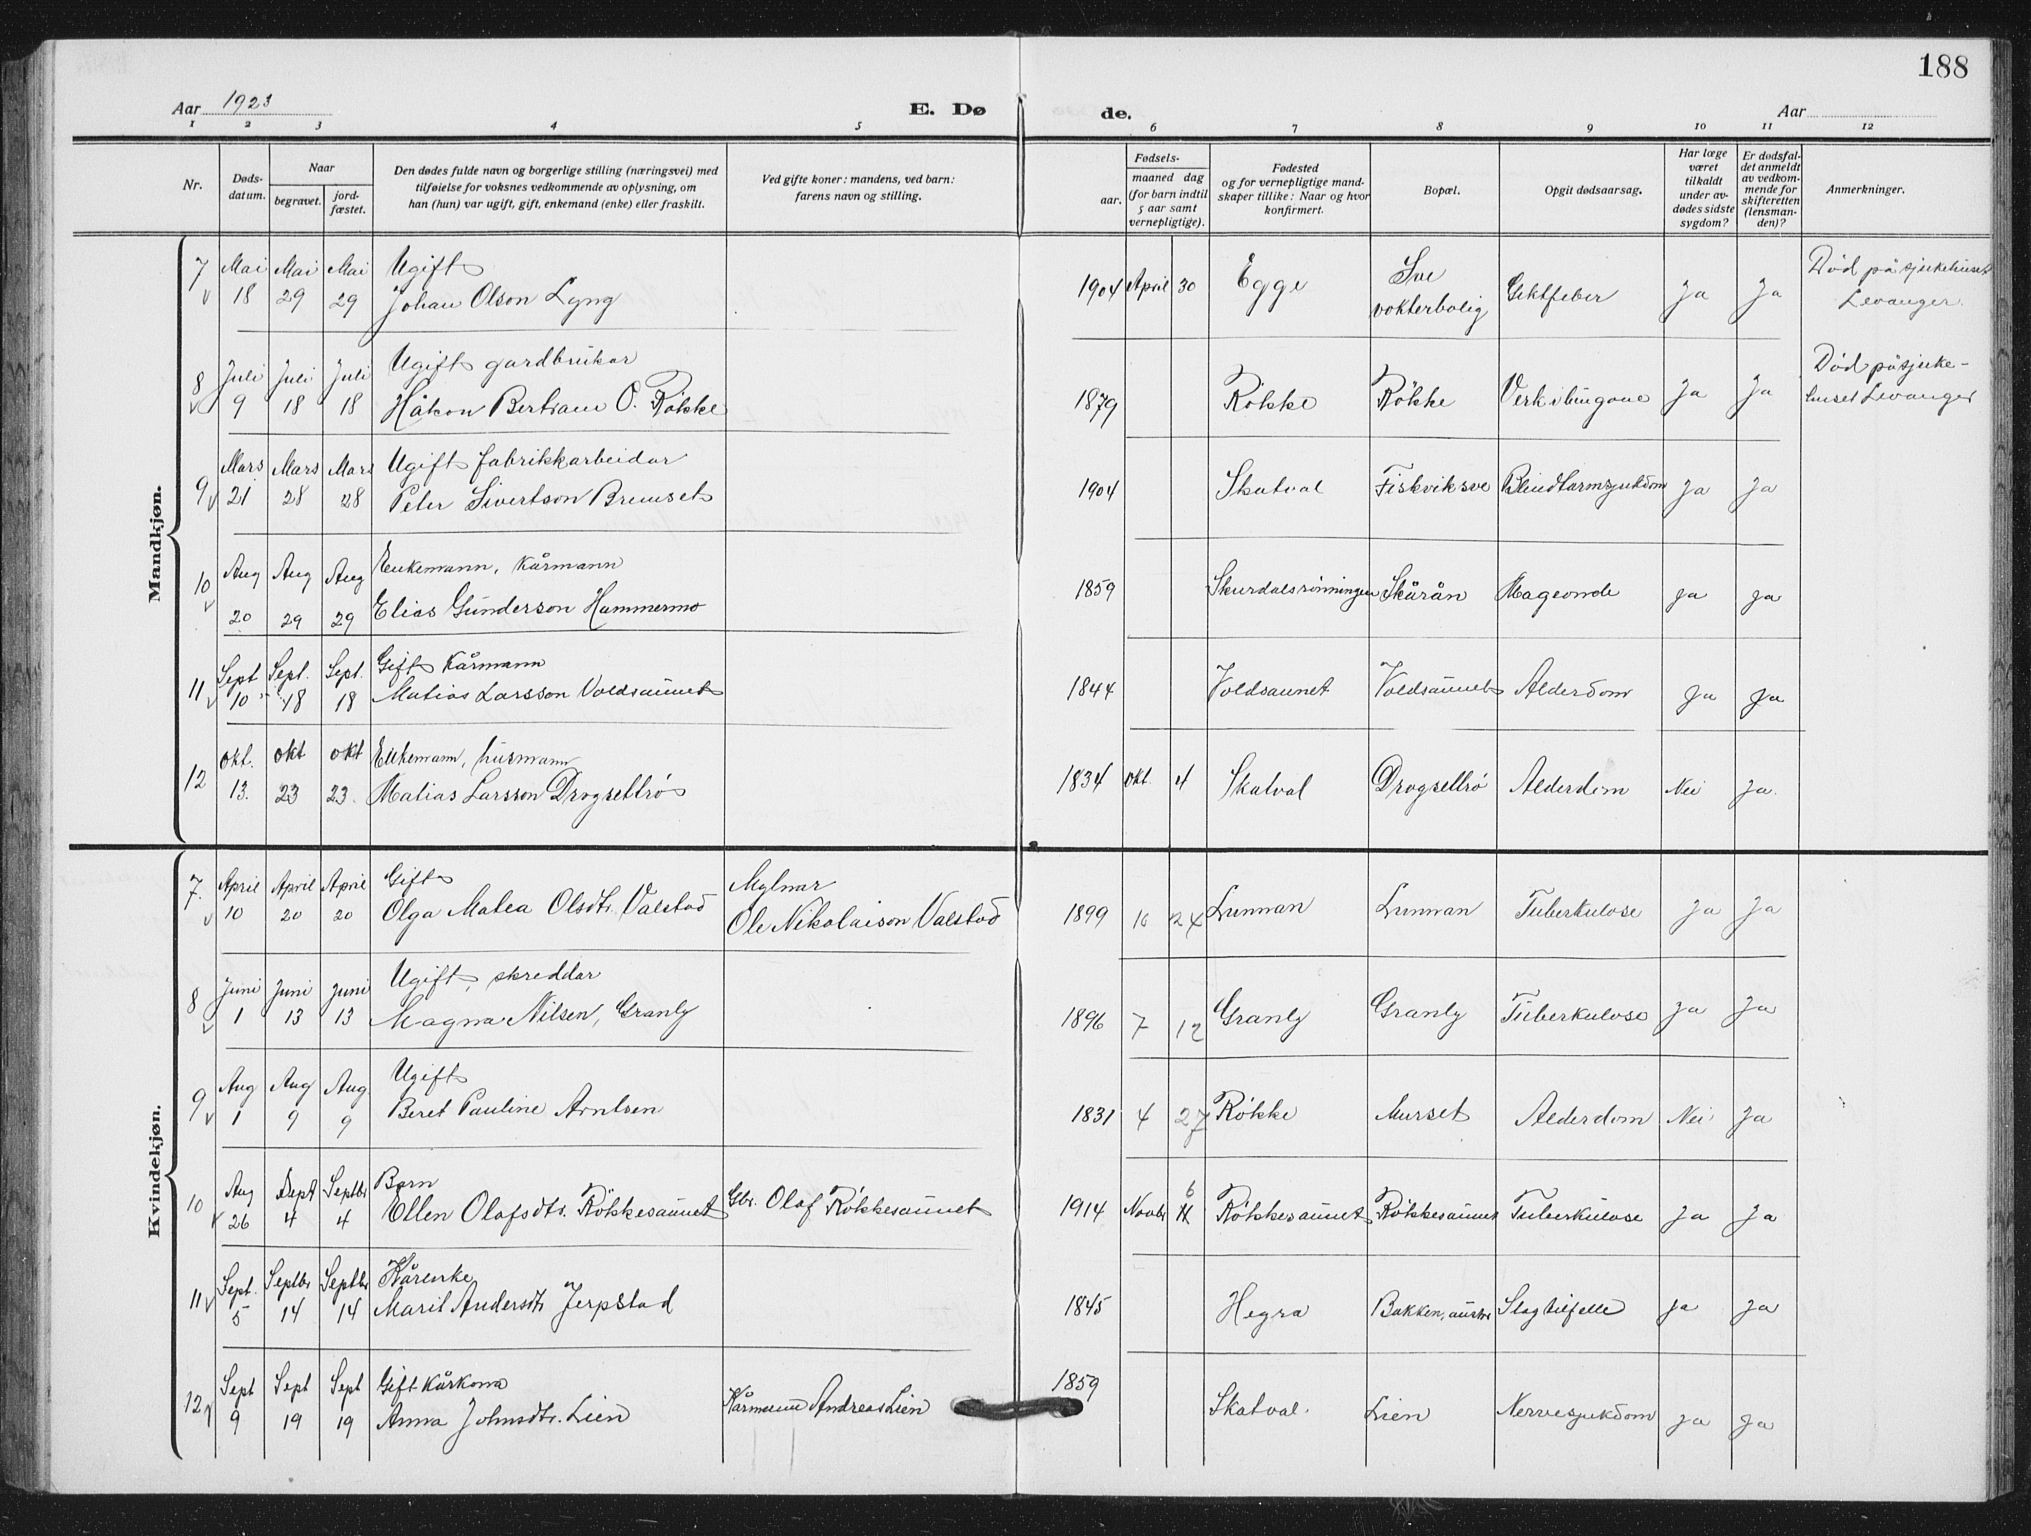 188
Aar 1923
E. Dø
de.
Aar
1 2 3 4 5 6 7 8 9 10 11 12
Nr.
Døds-
datum.
Naar
begravet.
jord-
fæstet.
Den dødes fulde navn og borgerlige stilling (næringsvei) med
tilføielse for voksnes vedkommende av oplysning, om
han (hun) var ugift, gift, enkemand (enke) eller fraskilt.
Ved gifte koner: mandens, ved barn:
farens navn og stilling.
Fødsels-
aar.
maaned dag
(for barn indtil
5 aar samt
vernepligtige).
Fødested
og for vernepligtige mand-
skaper tillike: Naar og hvor
konfirmert.
Bopæl.
Opgit dødsaarsag.
Har læge
været
tilkaldt
under av-
dødes sidste
sygdom?
Er dødsfal-
det anmeldt
av vedkom-
mende for
skifteretten
(lensman-
den)?
Anmerkninger.
Mandkjøn.
7 Mai Mai Mai Ugift
18 29 29 Johan Olson Lyng
1904 April 30 Egge Sve
vokterbolig Giktfeber Ja Ja
Død på sjukehuset
Levanger.
8 Juli Juli Juli Ugift gardbrukar
9 18 18 Håkon Bertram O. Røkke
1879 Røkke Røkke Verk i bugane Ja Ja
Død på sjuke-
huset Levanger
9 Mars Mars Mars Ugift fabrikkarbeidar
21 28 28 Peter Sivertson Bremset
1904 Skatval Fiskviksve Blindtarmsjukdom Ja Ja
10 Aug Aug Aug Enkemann, Kårmann
20 29 29 Elias Gunderson Hammermo
1859 Skurdalsrønningen Skårån Mageonde Ja Ja
11 Sept Sept. Sept. Gift Kårmann
10 18 18 Matias Larsson Voldsaunet
1844 Voldsaunet Voldsaunet Alderdom Ja Ja
12 Okt. Okt Okt Enkemann, husmann
13. 23 23. Matias Larsson Drogsettrø
1834 Okt. 4 Skatval Drogsettrø Alderdom Nei Ja.
Kvindekjøn.
7. April April April Gift
10 20 20 Olga Matea Olsdtr. Valstad
Mylnar
Ole Nikolaison Valstad
1899 10 24 Lunnan Lunnan Tuberkulose Ja Ja
8 Juni Juni Juni Ugift, skreddar
1 13 13 Magna Nilsen, Granly
1896 7 12 Granly Granly Tuberkulose Ja Ja
9 Aug Aug Aug. Ugift
1 9 9 Beret Pauline Arntsen
1831 4 27 Røkke Murset Alderdom Nei Ja
10 Aug Sept Septbr Barn
26 4 4 Ellen Olafsdtr. Røkkesaunet
Gbr. Olaf Røkkesaunet
1914 Novbr 6 Røkkesaunet Røkkesaunet Tuberkulose Ja Ja
11 Sept. Septbr Septbr Kårenke
5 14 14 Marit Andersdtr Jerpstad
1845 Hegra Bakken, austre Slagtilfelle Ja Ja
12 Sept Sept Sept Gift kårkona
9 19 19 Anna Johnsdtr. Lien
Kårmann Andreas Lien
1859 Skatval. Lien Nervesjukdom Ja Ja